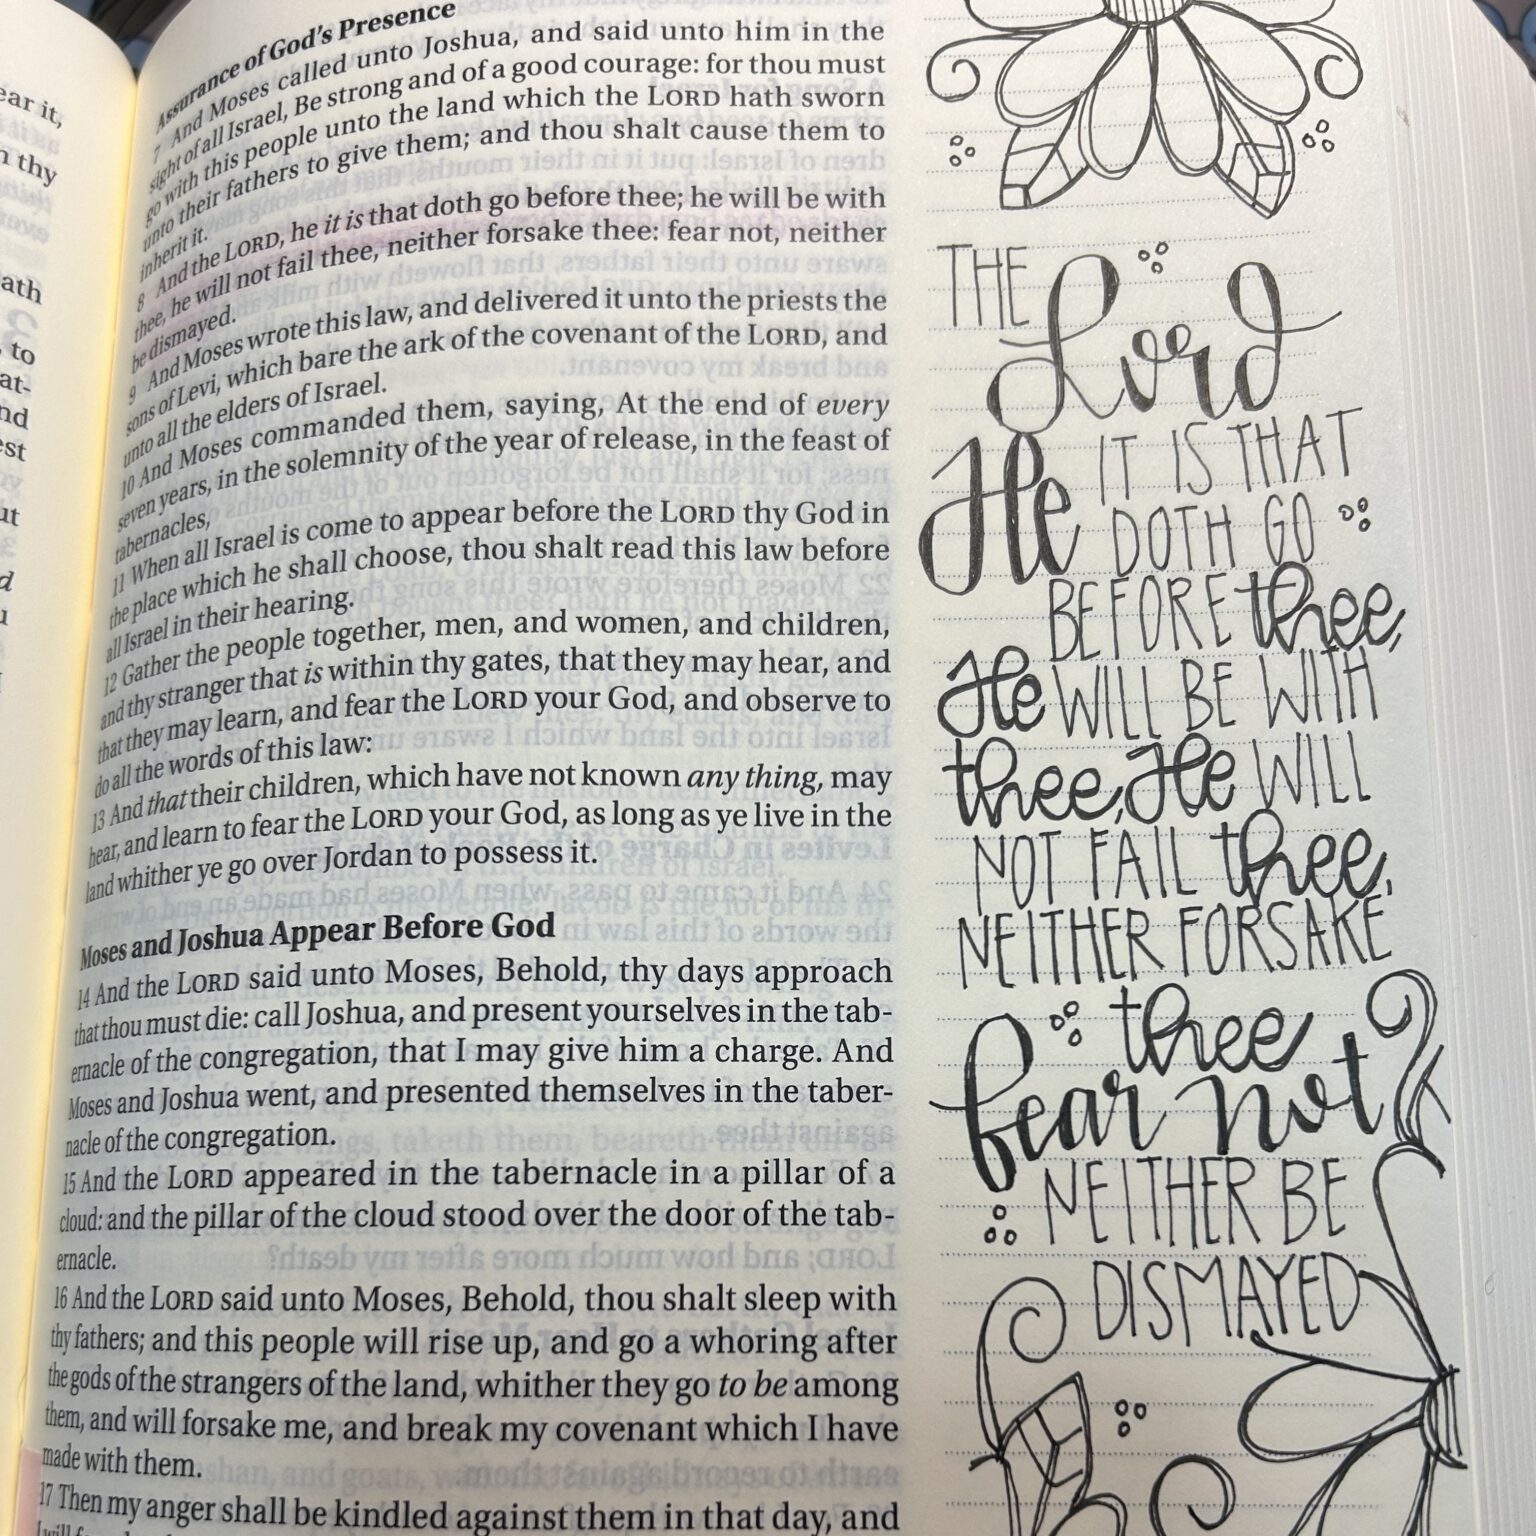 ear it,
thy
ath
to
at-
nd
est
ut
d
Assurance of God's Presence
7 And Moses called unto Joshua, and said unto him in the
sight of all Israel, Be strong and of a good courage: for thou must
go with this people unto the land which the LORD hath sworn
unto their fathers to give them; and thou shalt cause them to
inherit it.
8 And the LORD, he it is that doth go before thee; he will be with
thee, he will not fail thee, neither forsake thee: fear not, neither
be dismayed.
9 And Moses wrote this law, and delivered it unto the priests the
sons of Levi, which bare the ark of the covenant of the LORD, and
unto all the elders of Israel.
10 And Moses commanded them, saying, At the end of every
seven years, in the solemnity of the year of release, in the feast of
tabernacles,
11 When all Israel is come to appear before the LORD thy God in
the place which he shall choose, thou shalt read this law before
all Israel in their hearing.
12 Gather the people together, men, and women, and children,
and thy stranger that is within thy gates, that they may hear, and
that they may learn, and fear the LORD your God, and observe to
do all the words of this law:
13 And that their children, which have not known any thing, may
hear, and learn to fear the LORD your God, as long as ye live in the
land whither ye go over Jordan to possess it.
Moses and Joshua Appear Before God
14 And the LORD said unto Moses, Behold, thy days approach
that thou must die: call Joshua, and present yourselves in the tab-
ernacle of the congregation, that I may give him a charge. And
Moses and Joshua went, and presented themselves in the taber-
nacle of the congregation.
15 And the LORD appeared in the tabernacle in a pillar of a
cloud: and the pillar of the cloud stood over the door of the tab-
ernacle.
16 And the LORD said unto Moses, Behold, thou shalt sleep with
thy fathers; and this people will rise up, and go a whoring after
the gods of the strangers of the land, whither they go to be among
them, and will forsake me, and break my covenant which I have
made with them.
17 Then my anger shall be kindled against them in that day, and
THE Lord
He IT IS THAT
DOTH GO
BEFORE thee,
He WILL BE WITH
thee, He WILL
NOT FAIL thee,
NEITHER FORSAKE
thee
fear not
NEITHER BE
DISMAYED